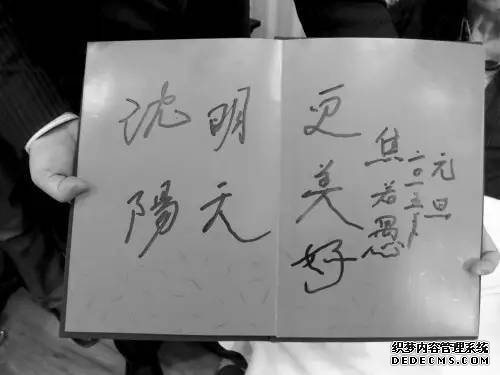 沈陽
明天
更美好
焦若愚
二〇一五年
元旦
织梦内容管理系统
DEDECMS.COM